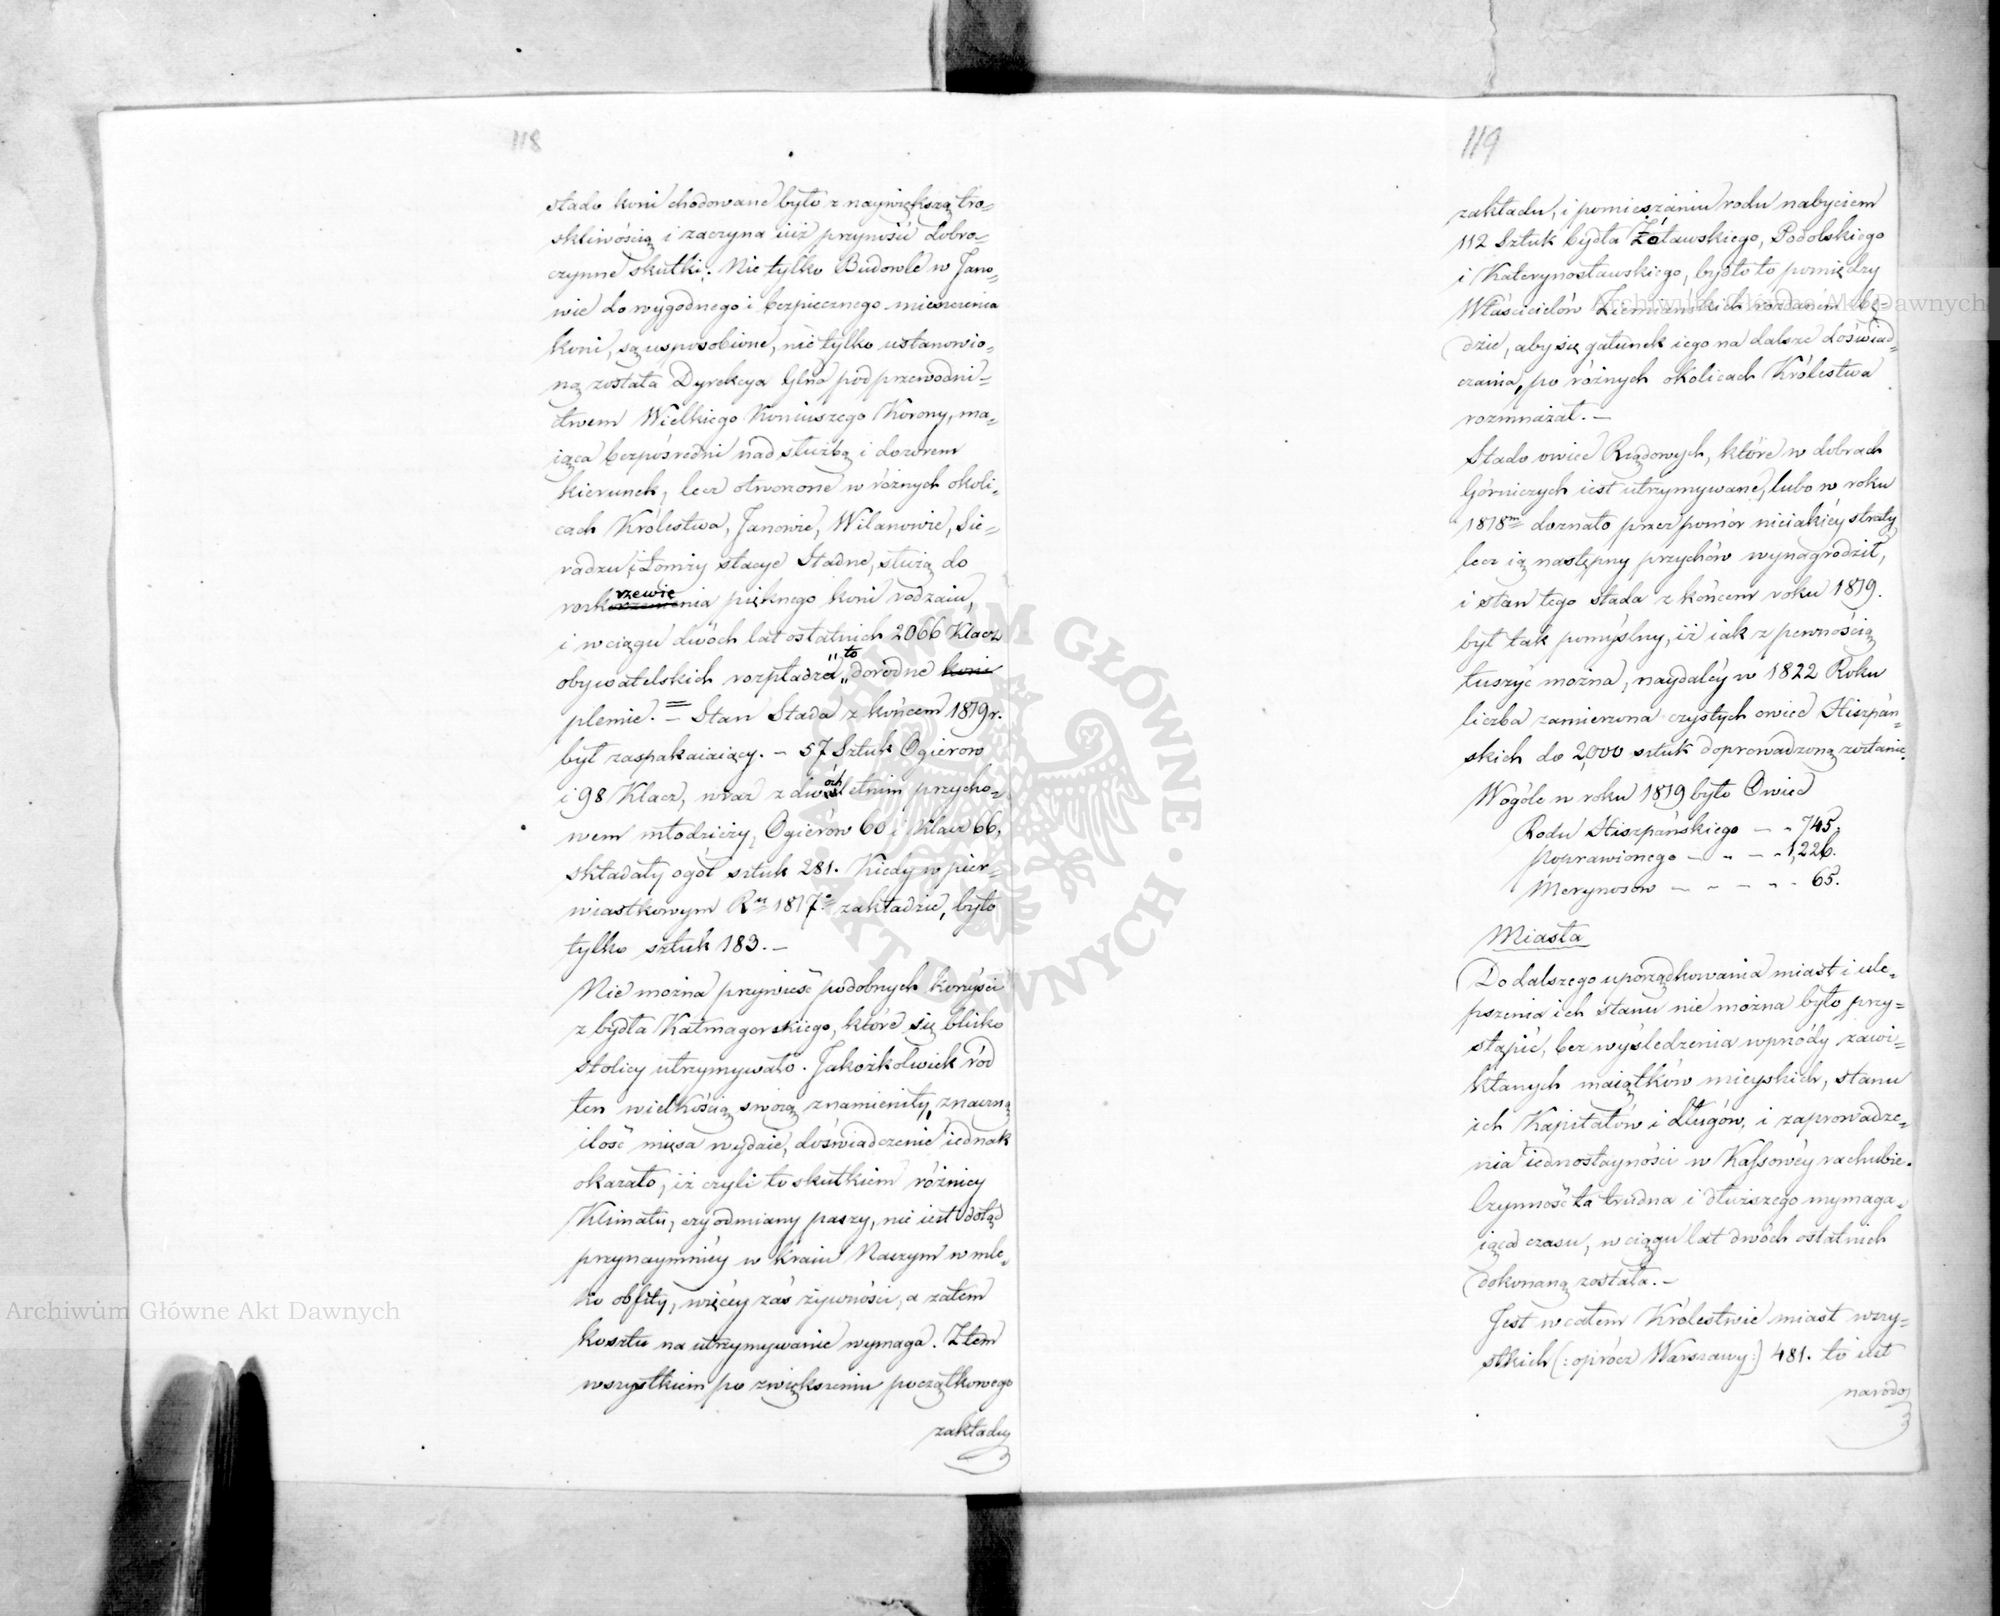 118
stado koni chodowane było z naywiększą tro-
skliwością i zaczyna iuż przynosić dobro-
czynne skutki. Nie tylko Budowle w Jano-
wie do wygodnego i bezpiecznego mieszczenia
koni, są usposobione, nie tylko ustanowio-
ną została Dyrekcya Głna pod przewodni-
ctwem Wielkiego Koniuszego Korony, ma-
iąca bezpośredni nad służbą i dozorem
kierunek, lecz otworzone w różnych okoli-
cach Królestwa, Janowie, Wilanowie, Sie-
radzu i Łomży stacye Stadne, służą do
rozkrzewienia pięknego koni rodzaiu,
i w ciągu dwóch lat ostatnich 2066 Klacz
obywatelskich rozpładza to dorodne koni
plemie. — Stan Stada z końcem 1819 r.
był zaspakaiaiący. — 57 Sztuk Ogierow
i 98 Klacz, wraz z dwóchletnim przycho-
wem młodzieży, Ogierów 60 i Klacz 66,
składały ogół sztuk 281. Kiedy w pier-
wiastkowym Ru 1817o zakładzie, było
tylko sztuk 183. —
Nie można przywieść podobnych korzyści
z bydła Kałmagorskiego, które się blisko
Stolicy utrzymywało. Jakożkolwiek ród
ten wielkością swoią znamienity, znaczną
ilość mięsa wydaie, doświadczenie iednak
okazało, iż czyli to skutkiem różnicy
Klimatu, czy odmiany paszy, nie iest dotąd
przynaymniéy w kraiu Naszym w mle-
ko obfity, więcéy zaś żywności, a zatem
kosztu na utrzymywanie wymaga. Z tém
wszystkiém po zwiększeniu początkowego
zakładu
119
zakładu, i pomieszaniu rodu nabyciem
112 Sztuk bydła Żóławskiego, Podolskiego
i Katerynosławskiego, bydło to pomiędzy
Właścicielów Ziemiańskich rozdaném bę-
dzie, aby się gatunek iego na dalsze doświad-
czania, po różnych okolicach Królestwa
rozmnażał. —
Stado owiec Rządowych, które w dobrach
Górniczych iest utrzymywane, lubo w roku
1818m doznało przez pomór nieiakiéy straty,
lecz ią następny przychów wynagrodził,
i stan tego stada z końcem roku 1819.
był tak pomyślny, iż iak z pewnością
tuszyć można, naydaléy w 1822 Roku
liczba zamierzona czystych owiec Hiszpań-
skich do 2,000 sztuk doprowadzoną zostanie.
Wogóle w roku 1819 było Owiec
Rodu Hiszpańskiego — - 745.
Poprawionego — - — - 1,226.
Merynosow — - - — - - 65.
Miasta
Do dalszego uporządkowania miast i ule-
pszenia ich stanu nie można było przy-
stąpić, bez wyśledzenia wprzódy zawi-
kłanych maiątków mieyskich, stanu
ich Kapitałów i długów, i zaprowadze-
nia iednostayności w Kassowéy rachubie.
Czynność ta trudna i dłuższego wymaga-
iąca czasu, w ciągu lat dwóch ostatnich
dokonaną została. —
Jest w całem Królestwie miast wszy-
stkich (: oprócz Warszawy :) 481. to iest
narodo
Archiwum Główne Akt Dawnych
Archiwum Główne Akt Dawnych
ARCHIWUM GŁÓWNE · AKT DAWNYCH ·